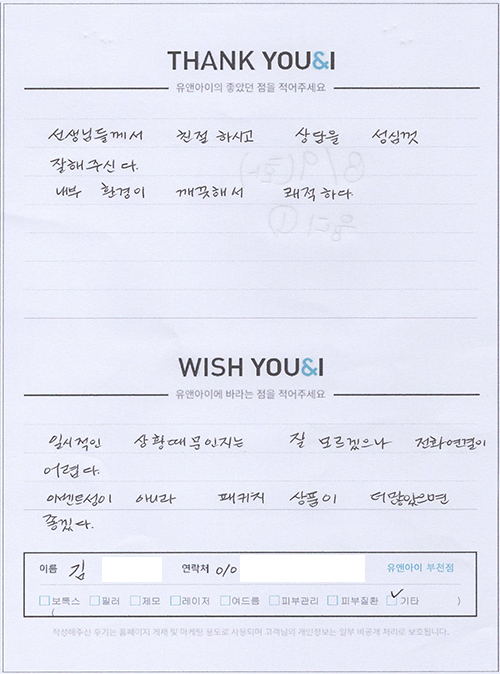 THANK YOU&I
유앤아이의 좋았던 점을 적어주세요
선생님들께서 친절 하시고 상담을 성심껏
잘해주신다.
내부 환경이 깨끗해서 쾌적하다.
WISH YOU&I
유앤아이에 바라는 점을 적어주세요
일시적인 상황때문인지는 잘 모르겠으나 전화연결이
어렵다.
이벤트성이 아니라 패키지 상품이 더많았으면
좋겠다.
이름 김 연락처 010 유앤아이 부천점
보톡스 필러 제모 레이저 여드름 피부관리 피부질환 기타 )
(
작성해주신 후기는 홈페이지 게재 및 마케팅 용도로 사용되며 고객님의 개인정보는 일부 비공개 처리로 보호됩니다.